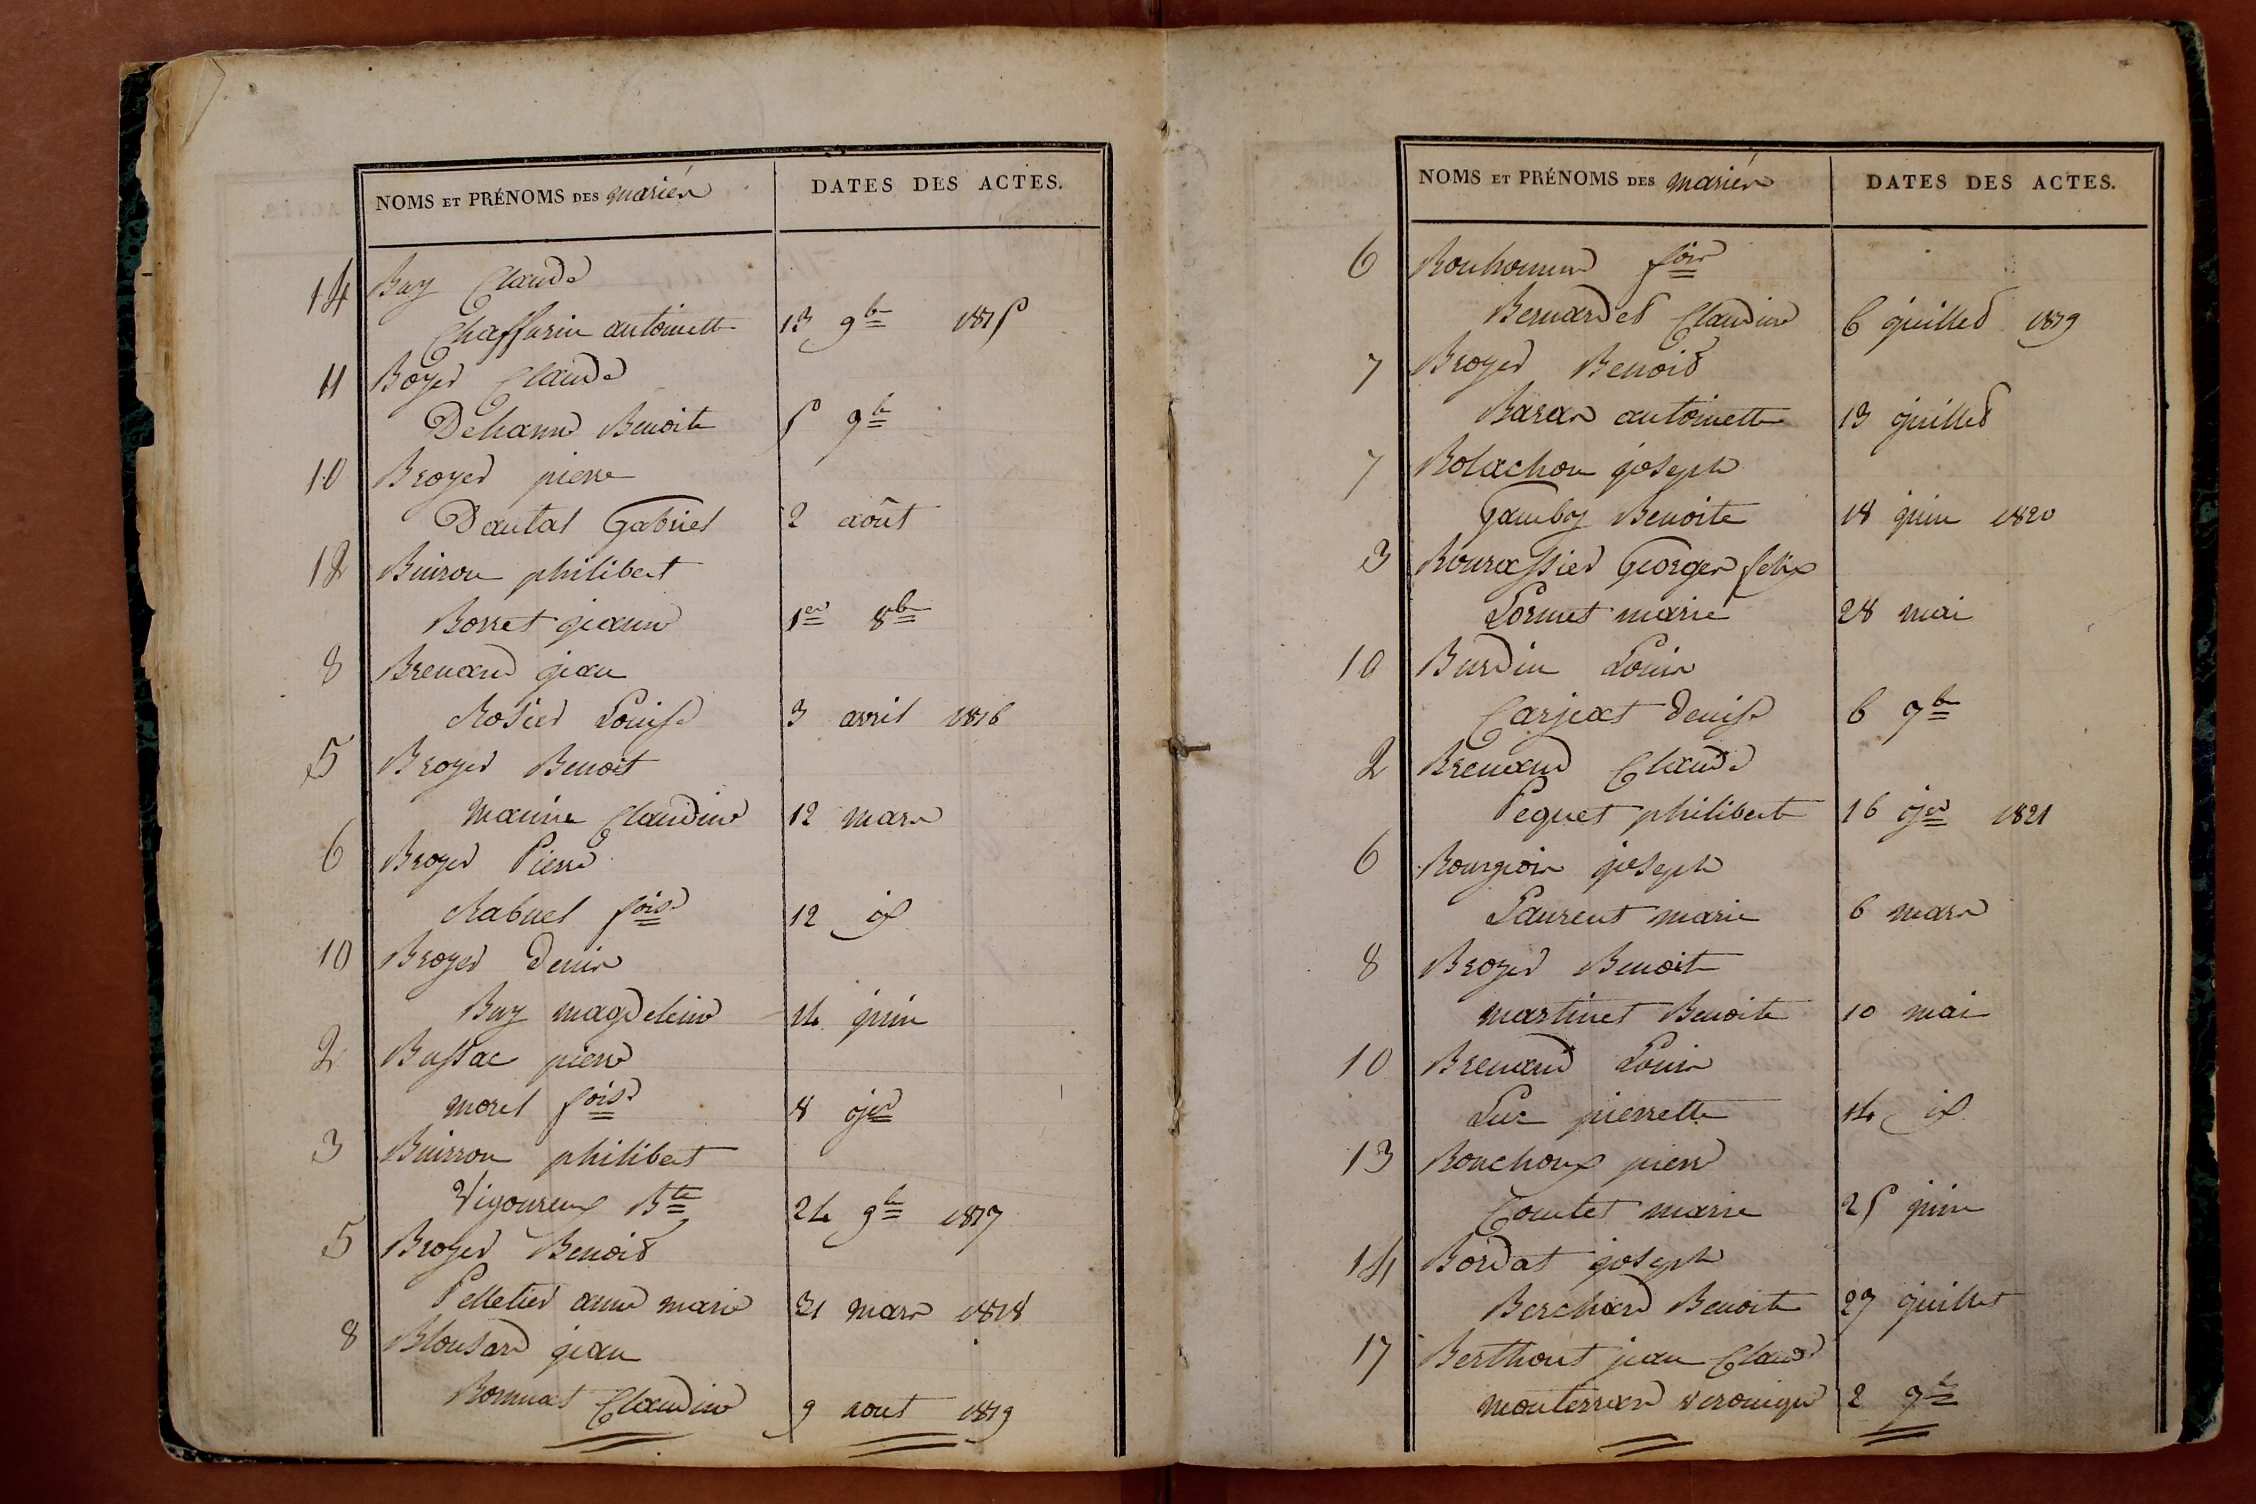 NOMS ET PRÉNOMS DES mariés
DATES DES ACTES.
14 Buy Claude
Chaffurin antoinette 13 9bre 1815
11 Boyer Claude
Dehanne Benoite 5 9bre
10 Broyer pierre
Dautal Gabriel 2 août
12 Buiron philibert
Borret jeanne 1er 8bre
8 Brenand jean
Rosier Louise 3 avril 1816
5 Broyer Benoit
Claudine 12 mars
6 Broyer Pierre
Rabuel foise 12 id
10 Broyer Denis
Buy magdeleine 14 juin
2 Bussac pierre
morel foise 8 jer
3 Buisson philibert
Vigoureux Bte 24 9bre 1817
5 Broyer Benoit
Pelletier anne marie 31 mars 1818
8 Blousard jean
Bonnat Claudine 9 aout 1819
NOMS ET PRÉNOMS DES mariés
DATES DES ACTES.
6 Bonhomme fois
Bernardet Claudine 6 juillet 1819
7 Broyer Benoit
Baras antoinette 13 juillet
7 Bolachon joseph
Gamboy Benoite 18 juin 1820
3 Bourassier Georges felix
Lornet marie 28 mai
10 Burdin Louis
Carjat Denise 6 9bre
2 Brenand Claude
Pequet philiberte 16 jer 1821
6 Bourgeois joseph
Laurent marie 6 mars
8 Broyer Benoit
martinet Benoite 10 mai
10 Brenand Louis
Luc pierrette 14 id
13 Bonchoux pierre
Comtet marie 25 juin
14 Bordat joseph
Berchard Benoite 27 juillet
17 Berthout jean Claude
monterrard veronique 2 9bre